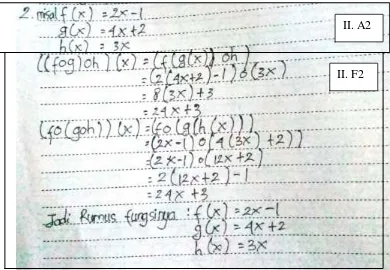 2. misal f(x) = 2x-1
g(x) = 4x+2
h(x) = 3x
II. A2
((fog)oh)(x) = (f(g(x)) oh)
= (2(4x+2)-1) o (3x)
II. F2
= 8(3x)+3
= 24x+3
(fo(goh))(x) = (fo(g(h(x)))
= (2x-1) o (4(3x)+2))
= (2x-1) o (12x+2)
= 2(12x+2)-1
= 24x+3
Jadi Rumus fungsinya : f(x) = 2x-1
g(x) = 4x+2
h(x) = 3x